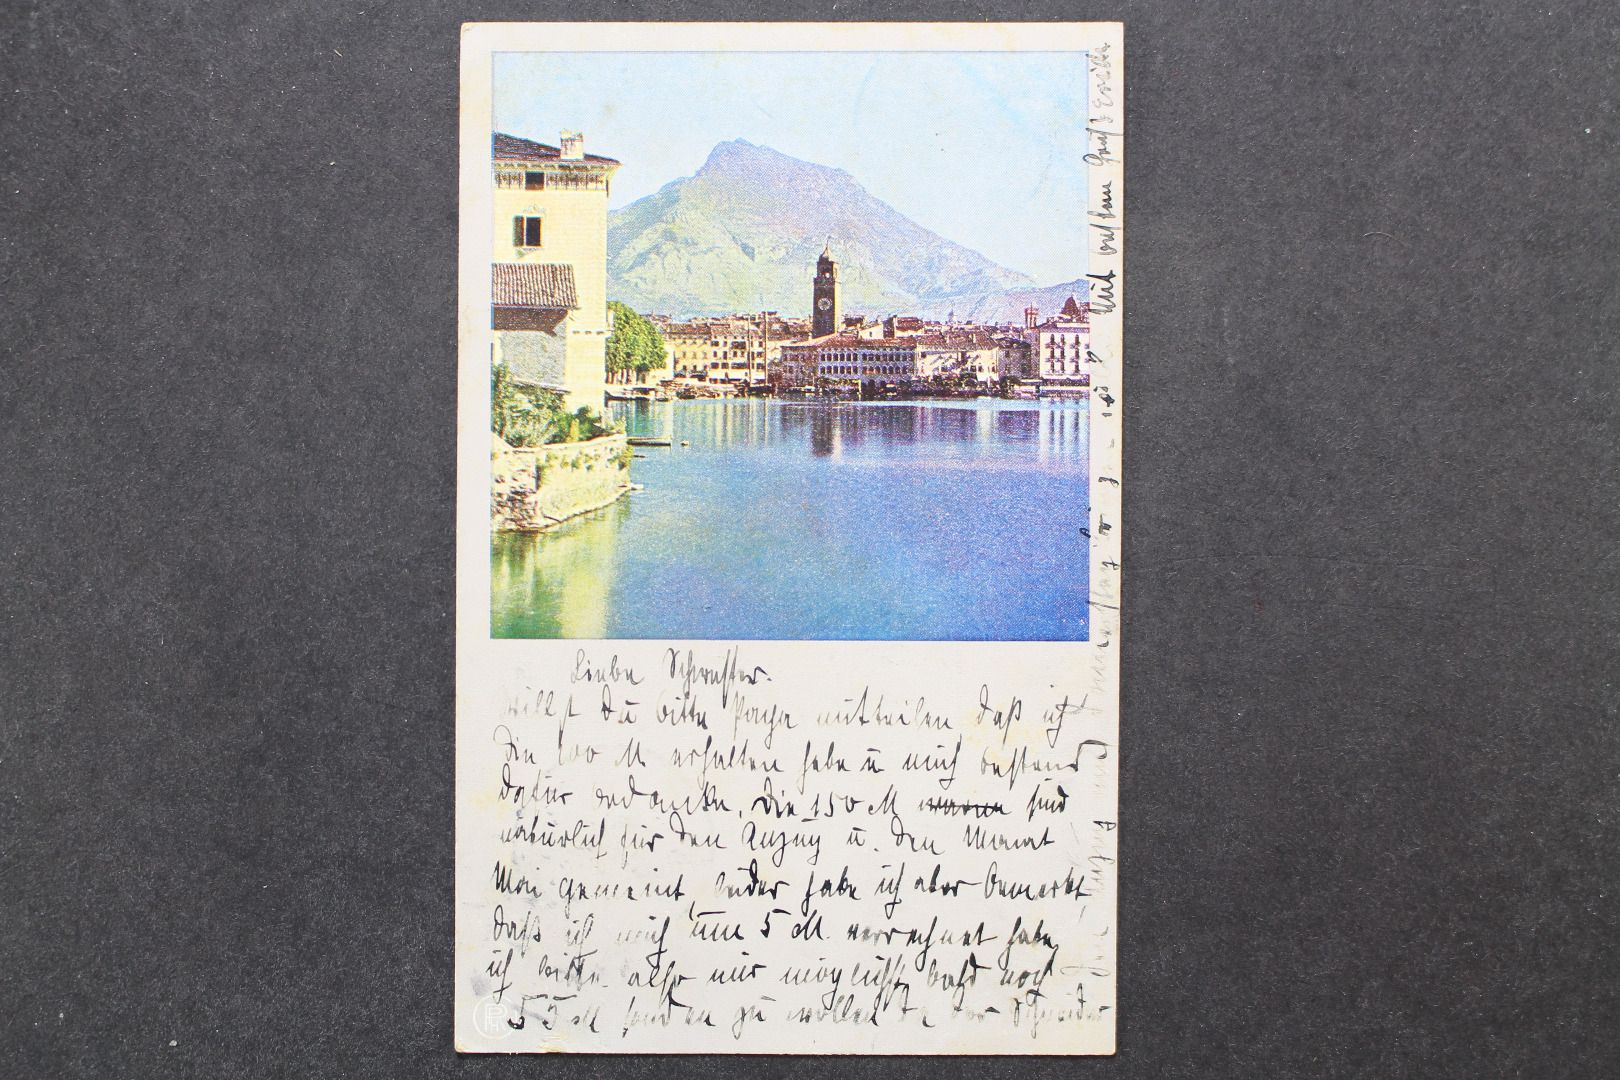 Liebe Schwester.
willst Du bitte Papa mitteilen, daß ich
die 100 M erhalten habe u mich bestens
dafür bedanke. Die 150 M waren sind
natürlich für den Anzug u. den Monat
Mai gemeint, leider habe ich aber bemerkt,
daß ich mich um 5 M. verrechnet habe,
ich bitte also mir möglichst bald noch
55 M senden zu wollen da der Schneider
den Anzug
Mit bestem Gruß Erich